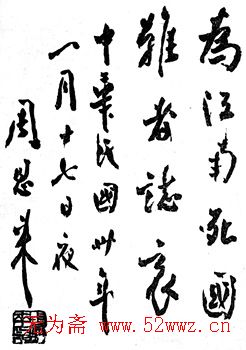 為江南死國
難者誌哀
中華民國卅年
一月十七日夜
周恩來
為斋 www.52wwz.cn